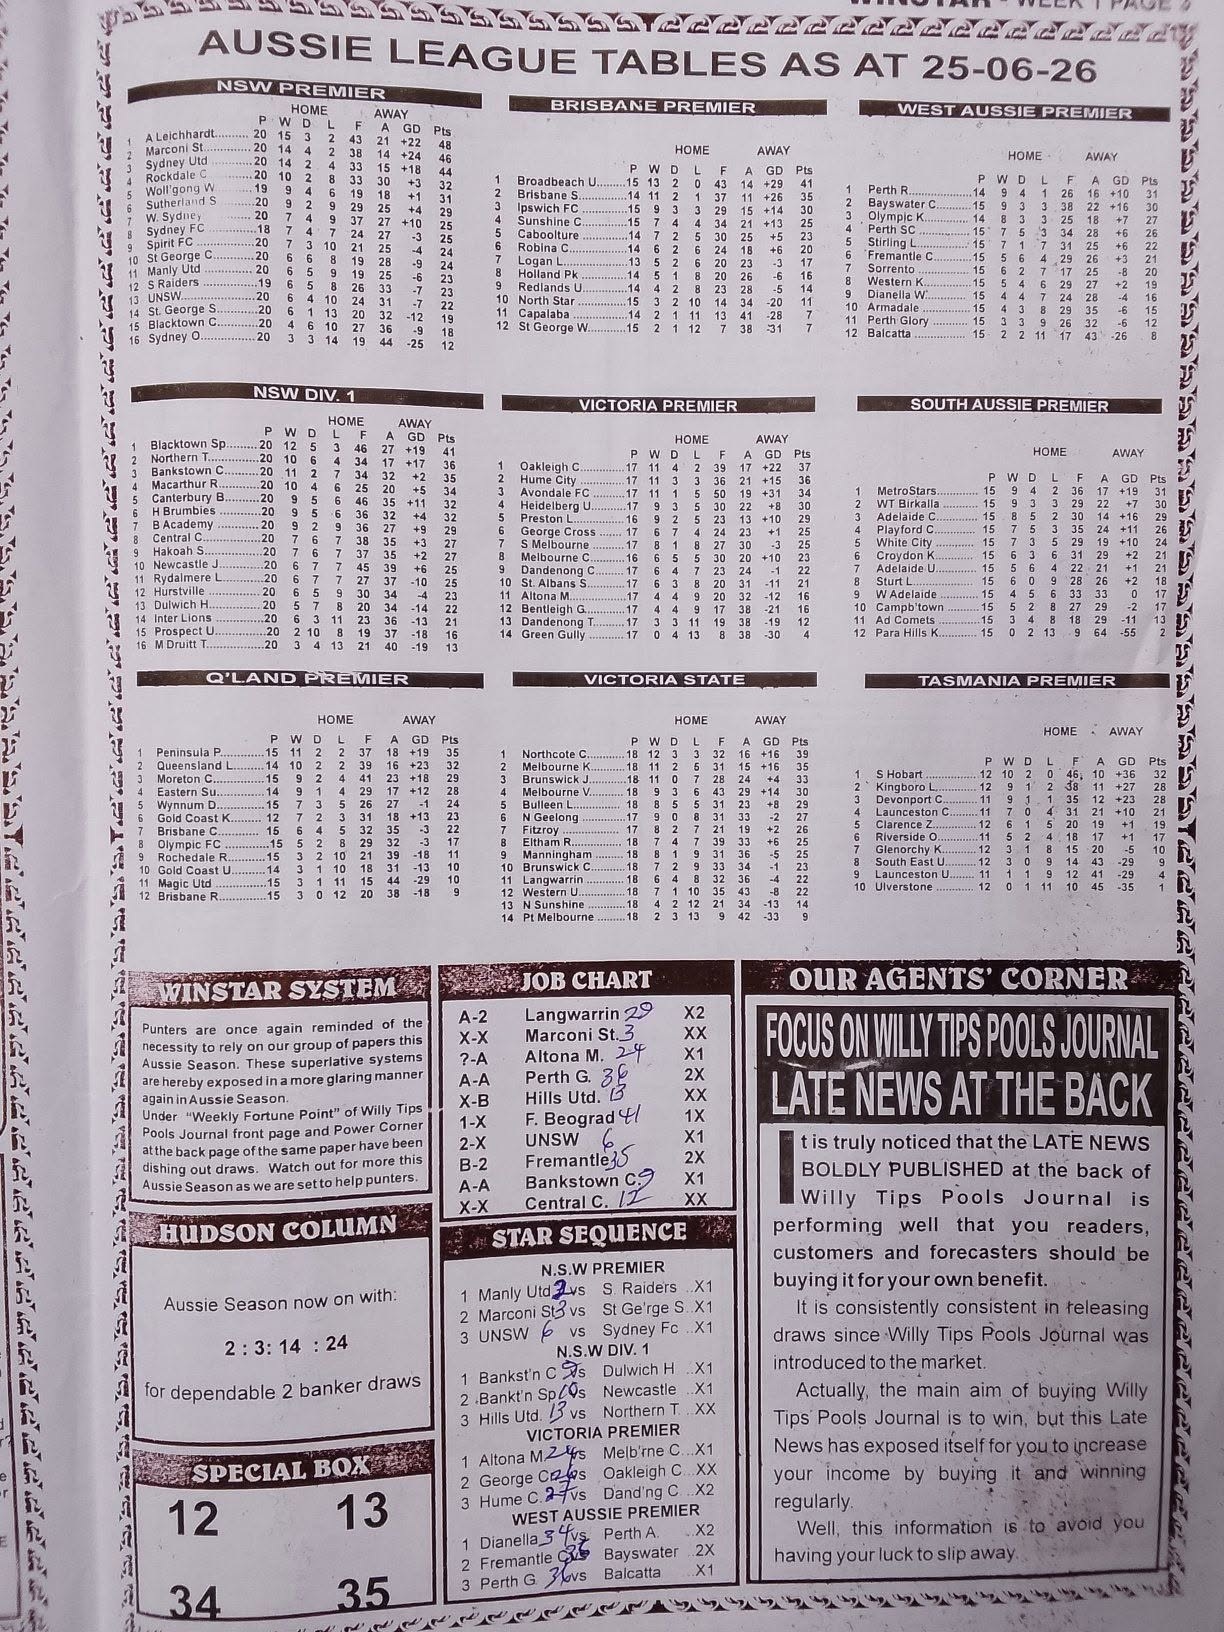 WINSTAR - WEEK 1 PAGE
AUSSIE LEAGUE TABLES AS AT 25-06-26
NSW PREMIER
HOME AWAY
P W D L F A GD Pts
1 A Leichhardt.......... 20 15 3 2 43 21 +22 48
2 Marconi St............ 20 14 4 2 38 14 +24 46
3 Sydney Utd .......... 20 14 2 4 33 15 +18 44
4 Rockdale C.......... 20 10 2 8 33 30 +3 32
5 Woll'gong W ........ 19 9 4 6 19 18 +1 31
6 Sutherland S ........ 20 9 2 9 29 25 +4 29
7 W. Sydney............ 20 7 4 9 37 27 +10 25
8 Sydney FC ........... 18 7 4 7 24 27 -3 25
9 Spirit FC .............. 20 7 3 10 21 25 -4 24
10 St George C......... 20 6 6 8 19 28 -9 24
11 Manly Utd ............ 20 6 5 9 19 25 -6 23
12 S Raiders ............ 19 6 5 8 26 33 -7 23
13 UNSW................. 20 6 4 10 24 31 -7 22
14 St. George S........ 20 6 1 13 20 32 -12 19
15 Blacktown C......... 20 4 6 10 27 36 -9 18
16 Sydney O............. 20 3 3 14 19 44 -25 12
BRISBANE PREMIER
HOME AWAY
P W D L F A GD Pts
1 Broadbeach U....... 15 13 2 0 43 14 +29 41
2 Brisbane S........... 14 11 2 1 37 11 +26 35
3 Ipswich FC .......... 15 9 3 3 29 15 +14 30
4 Sunshine C.......... 15 7 4 4 34 21 +13 25
5 Caboolture .......... 14 7 2 5 30 25 +5 23
6 Robina C............. 14 6 2 6 24 18 +6 20
7 Logan L.............. 13 5 2 6 20 23 -3 17
8 Holland Pk .......... 14 5 1 8 20 26 -6 16
9 Redlands U.......... 14 4 2 8 23 28 -5 14
10 North Star .......... 15 3 2 10 14 34 -20 11
11 Capalaba ........... 14 2 1 11 13 41 -28 7
12 St George W........ 15 2 1 12 7 38 -31 7
WEST AUSSIE PREMIER
HOME AWAY
P W D L F A GD Pts
1 Perth R............... 14 9 4 1 26 16 +10 31
2 Bayswater C........ 15 9 3 3 38 22 +16 30
3 Olympic K........... 14 8 3 3 25 18 +7 27
4 Perth SC ............ 15 7 5 3 34 28 +6 26
5 Stirling L............. 15 7 1 7 31 25 +6 22
6 Fremantle C........ 15 5 6 4 29 26 +3 21
7 Sorrento ............ 15 6 2 7 17 25 -8 20
8 Western K........... 15 5 4 6 29 27 +2 19
9 Dianella W.......... 15 4 4 7 24 28 -4 16
10 Armadale ........... 15 4 3 8 29 35 -6 15
11 Perth Glory ......... 15 3 3 9 26 32 -6 12
12 Balcatta ............. 15 2 2 11 17 43 -26 8
NSW DIV. 1
HOME AWAY
P W D L F A GD Pts
1 Blacktown Sp........ 20 12 5 3 46 27 +19 41
2 Northern T............ 20 10 6 4 34 17 +17 36
3 Bankstown C........ 20 11 2 7 34 32 +2 35
4 Macarthur R......... 20 10 4 6 25 20 +5 34
5 Canterbury B........ 20 9 5 6 46 35 +11 32
6 H Brumbies .......... 20 9 5 6 36 32 +4 32
7 B Academy .......... 20 9 2 9 36 27 +9 29
8 Central C............. 20 7 6 7 38 35 +3 27
9 Hakoah S............ 20 7 6 7 37 35 +2 27
10 Newcastle J......... 20 6 7 7 45 39 +6 25
11 Rydalmere L........ 20 6 7 7 27 37 -10 25
12 Hurstville ............ 20 6 5 9 30 34 -4 23
13 Dulwich H........... 20 5 7 8 20 34 -14 22
14 Inter Lions .......... 20 6 3 11 23 36 -13 21
15 Prospect U.......... 20 2 10 8 19 37 -18 16
16 M Druitt T............ 20 3 4 13 21 40 -19 13
VICTORIA PREMIER
HOME AWAY
P W D L F A GD Pts
1 Oakleigh C........... 17 11 4 2 39 17 +22 37
2 Hume City ........... 17 11 3 3 36 21 +15 36
3 Avondale FC ........ 17 11 1 5 50 19 +31 34
4 Heidelberg U........ 17 9 3 5 30 22 +8 30
5 Preston L............. 16 9 2 5 23 13 +10 29
6 George Cross ...... 17 6 7 4 24 23 +1 25
7 S Melbourne ........ 17 8 1 8 27 30 -3 25
8 Melbourne C........ 16 6 5 5 30 20 +10 23
9 Dandenong C....... 17 6 4 7 23 24 -1 22
10 St. Albans S......... 17 6 3 8 20 31 -11 21
11 Altona M............. 17 4 4 9 20 32 -12 16
12 Bentleigh G......... 17 4 4 9 17 38 -21 16
13 Dandenong T....... 17 3 3 11 19 38 -19 12
14 Green Gully ......... 17 0 4 13 8 38 -30 4
SOUTH AUSSIE PREMIER
HOME AWAY
P W D L F A GD Pts
1 MetroStars........... 15 9 4 2 36 17 +19 31
2 WT Birkalla .......... 15 9 3 3 29 22 +7 30
3 Adelaide C........... 15 8 5 2 30 14 +16 29
4 Playford C........... 15 7 5 3 35 24 +11 26
5 White City ........... 15 7 3 5 29 19 +10 24
6 Croydon K........... 15 6 3 6 31 29 +2 21
7 Adelaide U........... 15 5 6 4 22 21 +1 21
8 Sturt L................ 15 6 0 9 28 26 +2 18
9 W Adelaide .......... 15 4 5 6 33 33 0 17
10 Campb'town ........ 15 5 2 8 27 29 -2 17
11 Ad Comets .......... 15 3 4 8 18 29 -11 13
12 Para Hills K.......... 15 0 2 13 9 64 -55 2
Q'LAND PREMIER
HOME AWAY
P W D L F A GD Pts
1 Peninsula P.......... 15 11 2 2 37 18 +19 35
2 Queensland L....... 14 10 2 2 39 16 +23 32
3 Moreton C........... 15 9 2 4 41 23 +18 29
4 Eastern Su........... 14 9 1 4 29 17 +12 28
5 Wynnum D.......... 15 7 3 5 26 27 -1 24
6 Gold Coast K........ 12 7 2 3 31 18 +13 23
7 Brisbane C........... 15 6 4 5 32 35 -3 22
8 Olympic FC .......... 15 5 2 8 29 32 -3 17
9 Rochedale R......... 15 3 2 10 21 39 -18 11
10 Gold Coast U........ 14 3 1 10 18 31 -13 10
11 Magic Utd ........... 15 3 1 11 15 44 -29 10
12 Brisbane R........... 15 3 0 12 20 38 -18 9
VICTORIA STATE
HOME AWAY
P W D L F A GD Pts
1 Northcote C.......... 18 12 3 3 32 16 +16 39
2 Melbourne K........ 18 11 2 5 31 15 +16 35
3 Brunswick J.......... 18 11 0 7 28 24 +4 33
4 Melbourne V........ 18 9 3 6 43 29 +14 30
5 Bulleen L............. 18 8 5 5 31 23 +8 29
6 N Geelong ........... 17 9 0 8 31 33 -2 27
7 Fitzroy ................ 17 8 2 7 21 19 +2 26
8 Eltham R............. 18 7 4 7 39 33 +6 25
9 Manningham ........ 18 8 1 9 31 36 -5 25
10 Brunswick C......... 18 7 2 9 33 34 -1 23
11 Langwarrin .......... 18 6 4 8 32 36 -4 22
12 Western U........... 18 7 1 10 35 43 -8 22
13 N Sunshine .......... 18 4 2 12 21 34 -13 14
14 Pt Melbourne ....... 18 2 3 13 9 42 -33 9
TASMANIA PREMIER
HOME AWAY
P W D L F A GD Pts
1 S Hobart ............. 12 10 2 0 46 10 +36 32
2 Kingboro L........... 12 9 1 2 38 11 +27 28
3 Devonport C......... 11 9 1 1 35 12 +23 28
4 Launceston C....... 11 7 0 4 31 21 +10 21
5 Clarence Z........... 12 6 1 5 20 19 +1 19
6 Riverside O.......... 11 5 2 4 18 17 +1 17
7 Glenorchy K......... 12 3 1 8 15 20 -5 10
8 South East U........ 12 3 0 9 14 43 -29 9
9 Launceston U....... 11 1 1 9 12 41 -29 4
10 Ulverstone .......... 12 0 1 11 10 45 -35 1
WINSTAR SYSTEM
Punters are once again reminded of the
necessity to rely on our group of papers this
Aussie Season. These superlative systems
are hereby exposed in a more glaring manner
again in Aussie Season.
Under "Weekly Fortune Point" of Willy Tips
Pools Journal front page and Power Corner
at the back page of the same paper have been
dishing out draws. Watch out for more this
Aussie Season as we are set to help punters.
HUDSON COLUMN
Aussie Season now on with:
2 : 3: 14 : 24
for dependable 2 banker draws
SPECIAL BOX
12 13
34 35
JOB CHART
A-2 Langwarrin 29 X2
X-X Marconi St. 3 XX
?-A Altona M. 24 X1
A-A Perth G. 36 2X
X-B Hills Utd. 13 XX
1-X F. Beograd 41 1X
2-X UNSW 6 X1
B-2 Fremantle 35 2X
A-A Bankstown C. 9 X1
X-X Central C. 12 XX
STAR SEQUENCE
N.S.W PREMIER
1 Manly Utd 2 vs S. Raiders ..X1
2 Marconi St 3 vs St Ge'rge S ..X1
3 UNSW 6 vs Sydney Fc ..X1
N.S.W DIV. 1
1 Bankst'n C 9 vs Dulwich H ...X1
2 Bankt'n Sp 10 vs Newcastle ...X1
3 Hills Utd. 13 vs Northern T. ..XX
VICTORIA PREMIER
1 Altona M 24 vs Melb'rne C...X1
2 George C 26 vs Oakleigh C ..XX
3 Hume C. 27 vs Dand'ng C ..X2
WEST AUSSIE PREMIER
1 Dianella 34 vs Perth A. ...X2
2 Fremantle C 35 vs Bayswater ..2X
3 Perth G 36 vs Balcatta ...X1
OUR AGENTS' CORNER
FOCUS ON WILLY TIPS POOLS JOURNAL
LATE NEWS AT THE BACK
It is truly noticed that the LATE NEWS
BOLDLY PUBLISHED at the back of
Willy Tips Pools Journal is
performing well that you readers,
customers and forecasters should be
buying it for your own benefit.
It is consistently consistent in releasing
draws since Willy Tips Pools Journal was
introduced to the market.
Actually, the main aim of buying Willy
Tips Pools Journal is to win, but this Late
News has exposed itself for you to increase
your income by buying it and winning
regularly.
Well, this information is to avoid you
having your luck to slip away.